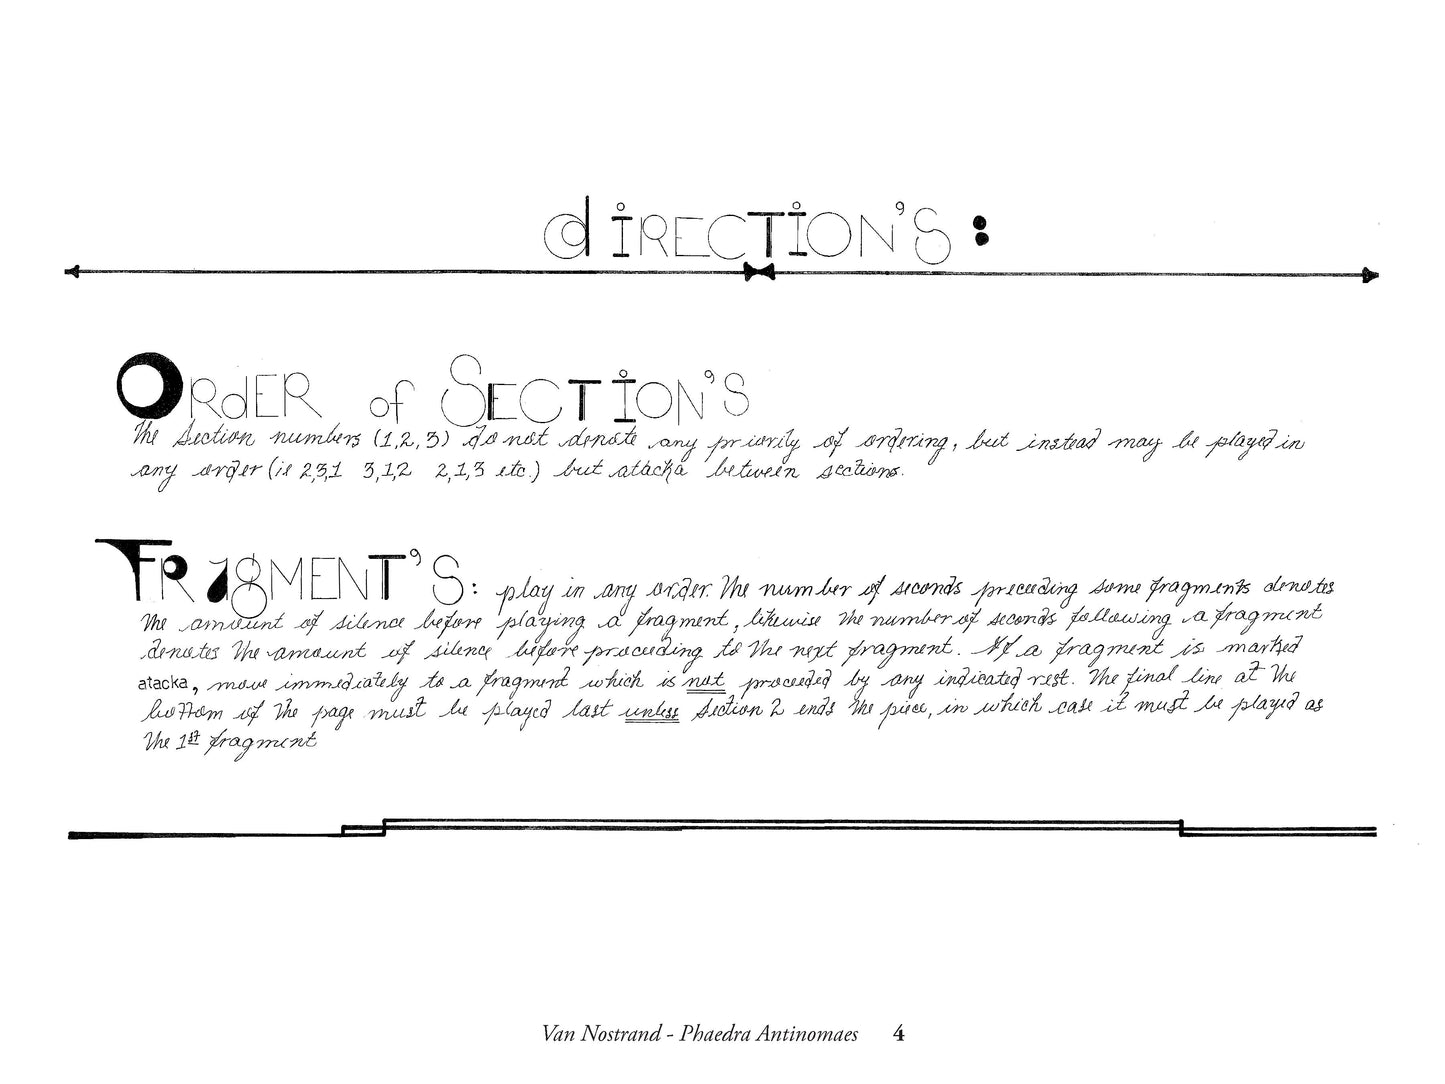 diRECTiON'S :
ORdER of SECTiON'S
The Section numbers (1,2,3) do not denote any priority of ordering, but instead may be played in
any order (ie 2,3,1 3,1,2 2,1,3 etc.) but atacka between sections.
FRAgMENT'S: play in any order. The number of seconds preceeding some fragments denotes
the amount of silence before playing a fragment, likewise the number of seconds following a fragment
denotes the amount of silence before proceeding to the next fragment. If a fragment is marked
atacka, move immediately to a fragment which is not proceeded by any indicated rest. The final line at the
bottom of the page must be played last unless Section 2 ends the piece, in which case it must be played as
the 1st fragment
Van Nostrand - Phaedra Antinomaes 4